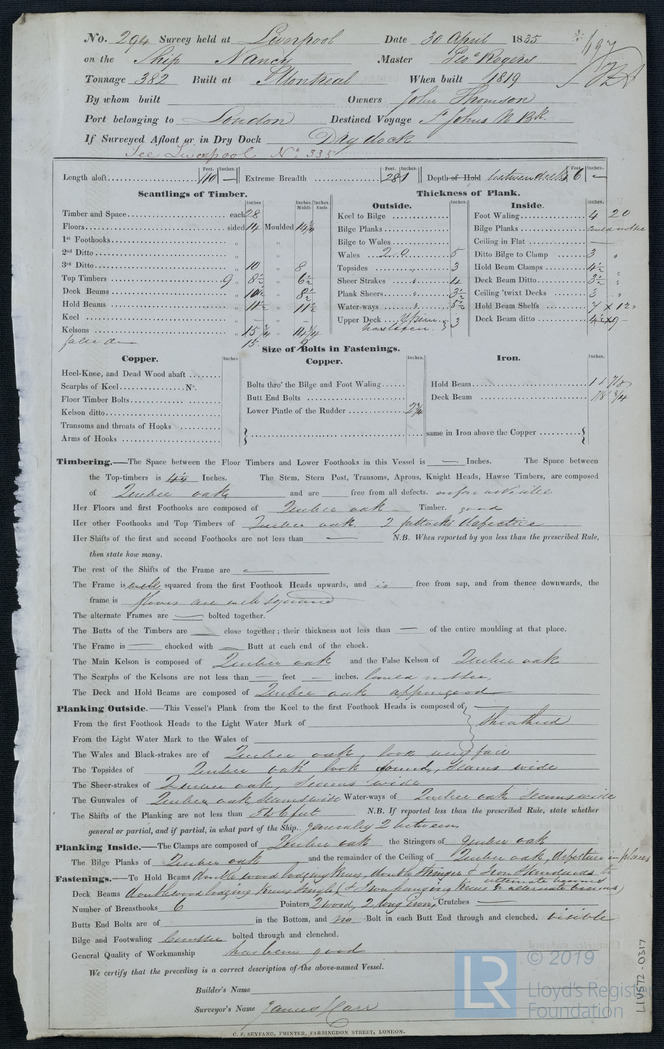 No. 294 Survey held at Liverpool Date 30 April 1835
on the Ship Nancy Master Geo Rogers
Tonnage 382 Built at Montreal When built 1819
By whom built Owners John Thomson
Port belonging to London Destined Voyage St Johns N Bk
If Surveyed Afloat or in Dry Dock Dry dock
See Liverpool No 335
Length aloft 110 Extreme Breadth 28 1 Depth of Hold between decks 6
Feet. Inches. Feet. Inches. Feet. Inches.
Scantlings of Timber.
Timber and Space each 28
Floors sided 14 Moulded 14½
1st Foothooks
2nd Ditto
3rd Ditto 10 8
Top Timbers 9 8½ 6½
Deck Beams 10½ 8½
Hold Beams 11½ 11½
Keel
Kelsons 15¾ 14¼
false do 15
Thickness of Plank.
Outside.
Keel to Bilge
Bilge Planks
Bilge to Wales
Wales 5
Topsides 3
Sheer Strakes 4
Plank Sheers 3½
Water-ways 5½
Upper Deck 3
Inside.
Foot Waling 4
Bilge Planks
Ceiling in Flat
Ditto Bilge to Clamp 3
Hold Beam Clamps 4½
Deck Beam Ditto 3½
Ceiling 'twixt Decks 3
Hold Beam Shelfs 7 x 12
Deck Beam ditto
Size of Bolts in Fastenings.
Copper.
Heel-Knee, and Dead Wood abaft
Scarphs of Keel No.
Floor Timber Bolts
Kelson ditto
Transoms and throats of Hooks
Arms of Hooks
Copper.
Bolts thro' the Bilge and Foot Waling
Butt End Bolts
Lower Pintle of the Rudder
Iron.
Hold Beam 1 1 7/8
Deck Beam 7/8 3/4
same in Iron above the Copper
Timbering.—The Space between the Floor Timbers and Lower Foothooks in this Vessel is — Inches. The Space between
the Top-timbers is Inches. The Stem, Stern Post, Transoms, Aprons, Knight Heads, Hawse Timbers, are composed
of Quebec oak and are — free from all defects. as far as visible
Her Floors and first Foothooks are composed of Quebec oak Timber. good
Her other Foothooks and Top Timbers of Quebec oak. 2 futtocks defective
Her Shifts of the first and second Foothooks are not less than — N.B. When reported by you less than the prescribed Rule,
then state how many.
The rest of the Shifts of the Frame are
The Frame is well squared from the first Foothook Heads upwards, and is free from sap, and from thence downwards, the
frame is floors are well squared
The alternate Frames are — bolted together.
The Butts of the Timbers are — close together; their thickness not less than — of the entire moulding at that place.
The Frame is — chocked with — Butt at each end of the chock.
The Main Kelson is composed of Quebec oak and the False Kelson of Quebec oak
The Scarphs of the Kelsons are not less than — feet — inches. could not see
The Deck and Hold Beams are composed of Quebec oak appear good
Planking Outside.—This Vessel's Plank from the Keel to the first Foothook Heads is composed of
From the first Foothook Heads to the Light Water Mark of
From the Light Water Mark to the Wales of
sheathed
The Wales and Black-strakes are of Quebec oak, look very fair
The Topsides of Quebec oak look sound, seams wide
The Sheer-strakes of Quebec oak, seams wide
The Gunwales of Quebec oak seams wide Water-ways of Quebec oak seams wide
The Shifts of the Planking are not less than 5 to 6 feet N.B. If reported less than the prescribed Rule, state whether
general or partial, and if partial, in what part of the Ship. generally 2 between
Planking Inside.—The Clamps are composed of Quebec oak the Stringers of Quebec oak
The Bilge Planks of Quebec oak and the remainder of the Ceiling of Quebec oak, defective in places
Fastenings.—To Hold Beams double wood lodging knees, double stringer & Iron standards to alternate beams
Deck Beams double wood lodging knees & Iron hanging knees to alternate beams
Number of Breasthooks 6 Pointers 2 wood, 2 long iron, Crutches —
Butts End Bolts are of in the Bottom, and no Bolt in each Butt End through and clenched. visible
Bilge and Footwaling bolted through and clenched.
General Quality of Workmanship has been good
We certify that the preceding is a correct description of the above-named Vessel.
Builder's Name
Surveyor's Name James Carr
C. F. SEYFANG, PRINTER, FARRINGDON STREET, LONDON.
LR © 2019
Lloyd's Register
Foundation